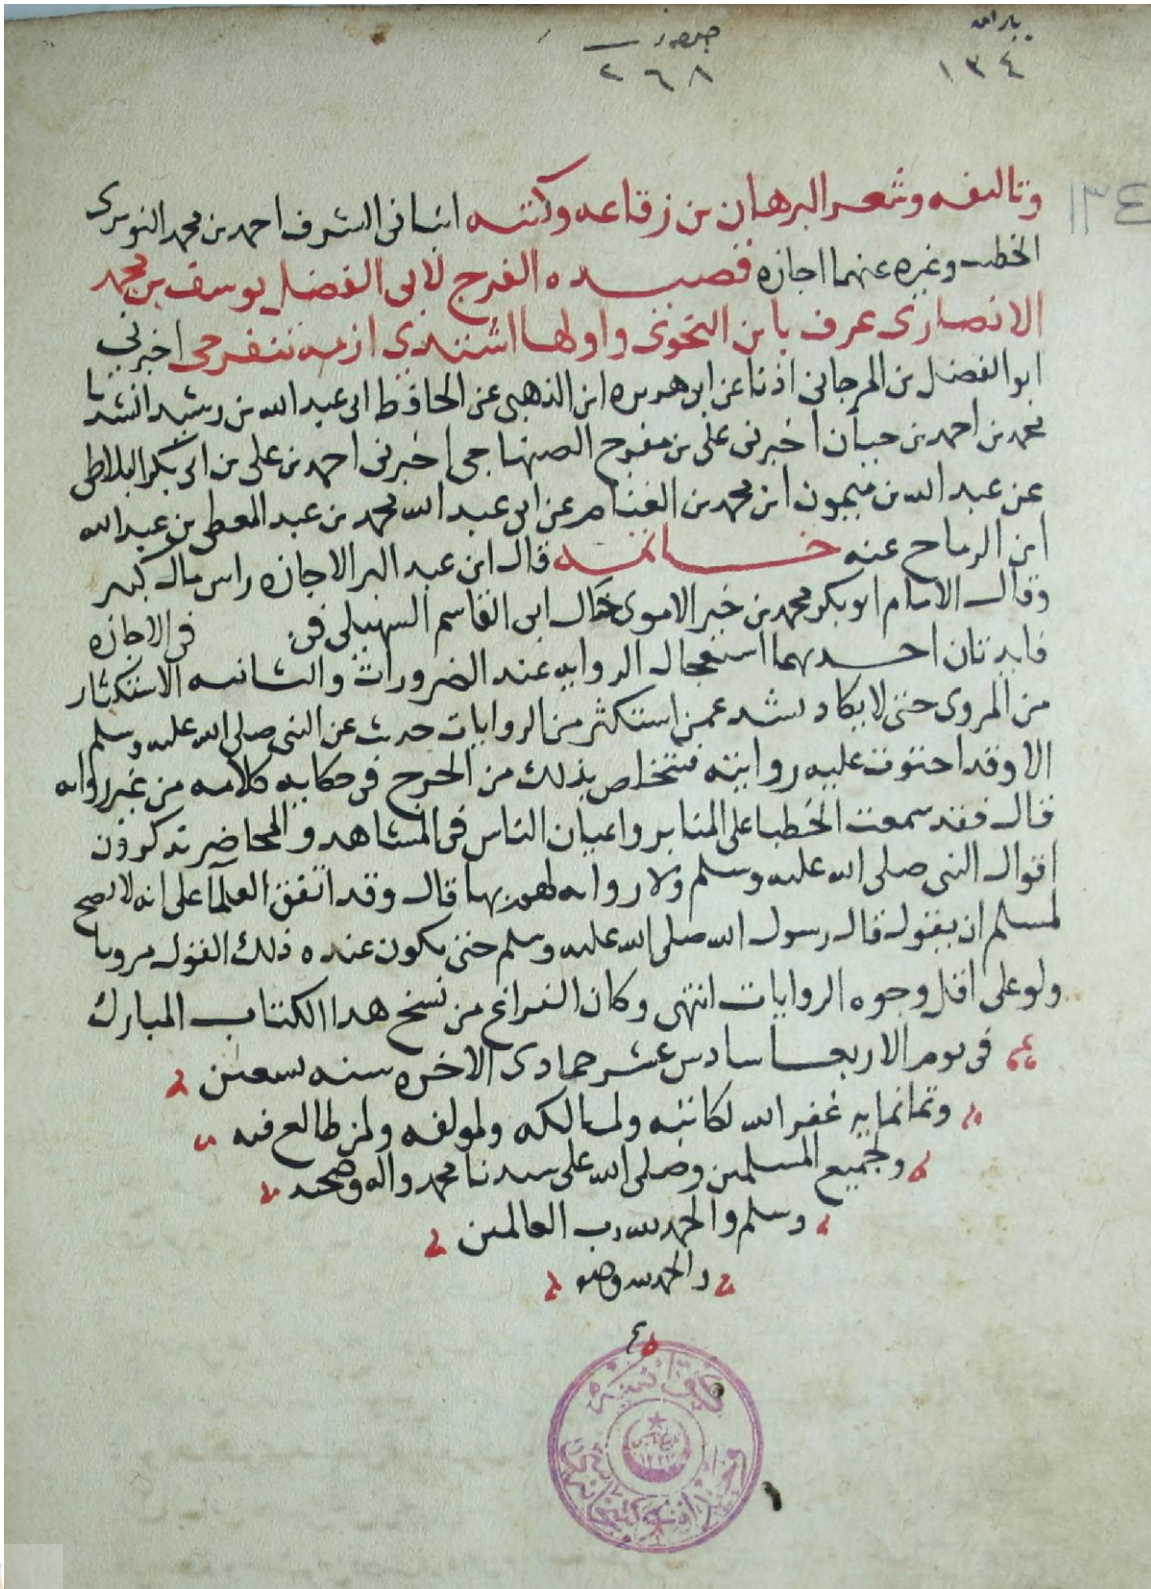 يپراق
١٣٤
صحيفه
٢٦٨
١٣٤
وتاليفه وشعر البرهان بن زقاعه وكتبه انبانى الشرف احمد بن محمد النويرى
الخطيب وغيره عنهما اجازه قصيده الفرج لابى الفضل يوسف بن محمد
الانصارى عرف بابن النحوى واولها اشتدي ازمه تنفرجى اخبرني
ابو الفضل بن المرجانى اذنا عن ابى هريره ابن الذهبى عن الحافظ ابى عبد الله بن رشيد انشدنا
محمد بن احمد بن حيان اخبرنى على بن مفرح الصنهاجى اخبرنى احمد بن على بن ابى بكر البلاطى
عن عبد الله بن ميمون ابن محمد بن الغنام عن ابى عبد الله محمد بن عبد المعطى بن عبد الله
ابن الرماح عنه خاتمه قال ابن عبد البر الاجازه راس مال كبير
وقال الامام ابو بكر محمد بن خير الاموى خال ابى القاسم السهيلى فى فى الاجازه
فايدتان احديهما استعجال الروايه عند الضرورات والثانيه الاستكثار
من المروى حتى لا يكاد يشد عمن استكثر من الروايات حديث عن النبى صلى الله عليه وسلم
الا وقد احتوت عليه روايته فتتخلص بذلك من الحرج فى حكايه كلامه من غير روايه
قال فقد سمعت الخطبا على المنابر واعيان الناس فى المشاهد والمحاضر يذكرون
اقوال النبى صلى الله عليه وسلم ولا روايه لهم بها قال وقد اتفق العلمآ على انه لا يصح
لمسلم ان يقول قال رسول الله صلى الله عليه وسلم حتى يكون عنده ذلك القول مرويا
ولو على اقل وجوه الروايات انتهى وكان الفراغ من نسخ هدا الكتاب المبارك
فى يوم الاربعا سادس عشر جمادى الاخره سنه تسعين
وثمانمايه غفر الله لكاتبه ولمالكه ولمولفه ولمن طالع فيه
ولجميع المسلمين وصلى الله على سيدنا محمد واله وصحبه
وسلم والحمد لله رب العالمين
والحمد لله وحده